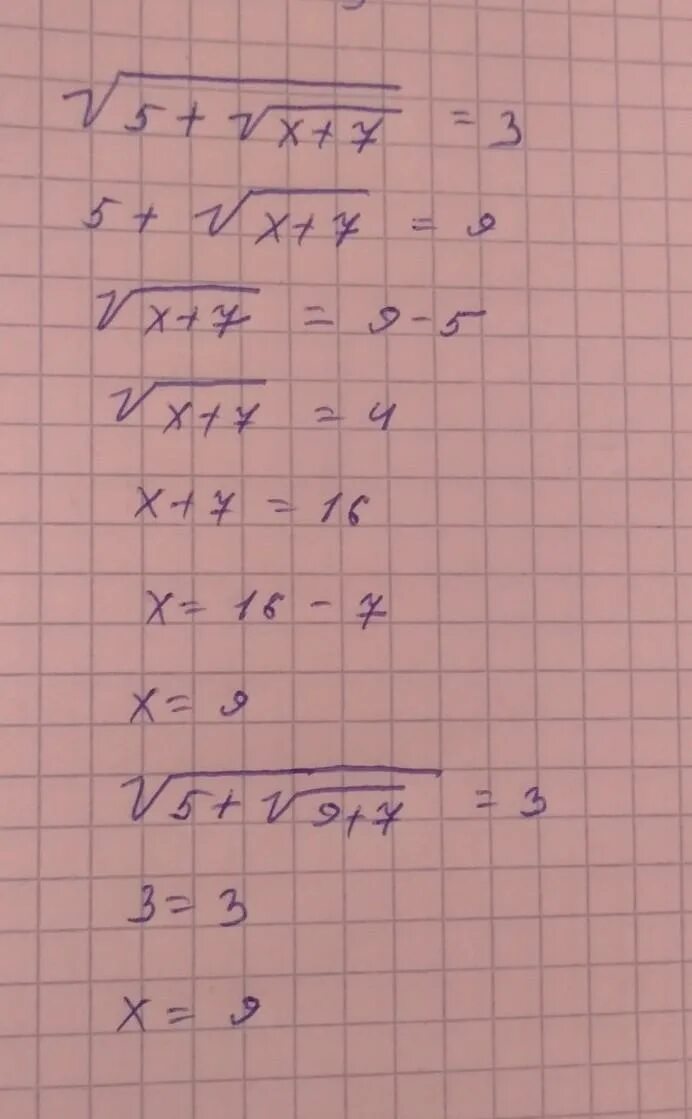 √(5 + √(x+7)) = 3
5 + √(x+7) = 9
√(x+7) = 9 - 5
√(x+7) = 4
x+7 = 16
x = 16 - 7
x = 9
√(5 + √(9+7)) = 3
3 = 3
x = 9